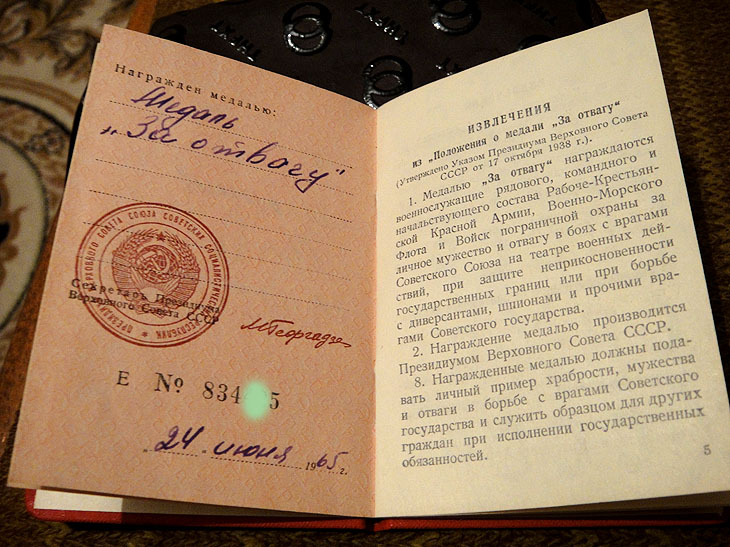 Награжден медалью:
Медаль
„За отвагу"
ВЕРХОВНОГО СОВЕТА СОЮЗА СОВЕТСКИХ СОЦИАЛИСТИЧЕСКИХ РЕСПУБЛИК
Секретарь Президиума
Верховного Совета СССР
МГеоргадзе
Е № 834 5
24 июня 1965 г.
ИЗВЛЕЧЕНИЯ
из „Положения о медали „За отвагу"
(Утверждено Указом Президиума Верховного Совета
СССР от 17 октября 1938 г.).
1. Медалью „За отвагу" награждаются
военнослужащие рядового, командного и
начальствующего состава Рабоче-Крестьян-
ской Красной Армии, Военно-Морского
Флота и Войск пограничной охраны за
личное мужество и отвагу в боях с врагами
Советского Союза на театре военных дей-
ствий, при защите неприкосновенности
государственных границ или при борьбе
с диверсантами, шпионами и прочими вра-
гами Советского государства.
2. Награждение медалью производится
Президиумом Верховного Совета СССР.
8. Награжденные медалью должны пода-
вать личный пример храбрости, мужества
и отваги в борьбе с врагами Советского
государства и служить образцом для других
граждан при исполнении государственных
обязанностей.
5